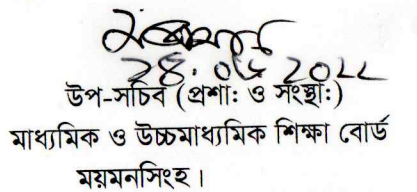 ২৪.০৫ ২০২২
উপ-সচিব (প্রশা: ও সংস্থা:)
মাধ্যমিক ও উচ্চমাধ্যমিক শিক্ষা বোর্ড
ময়মনসিংহ।